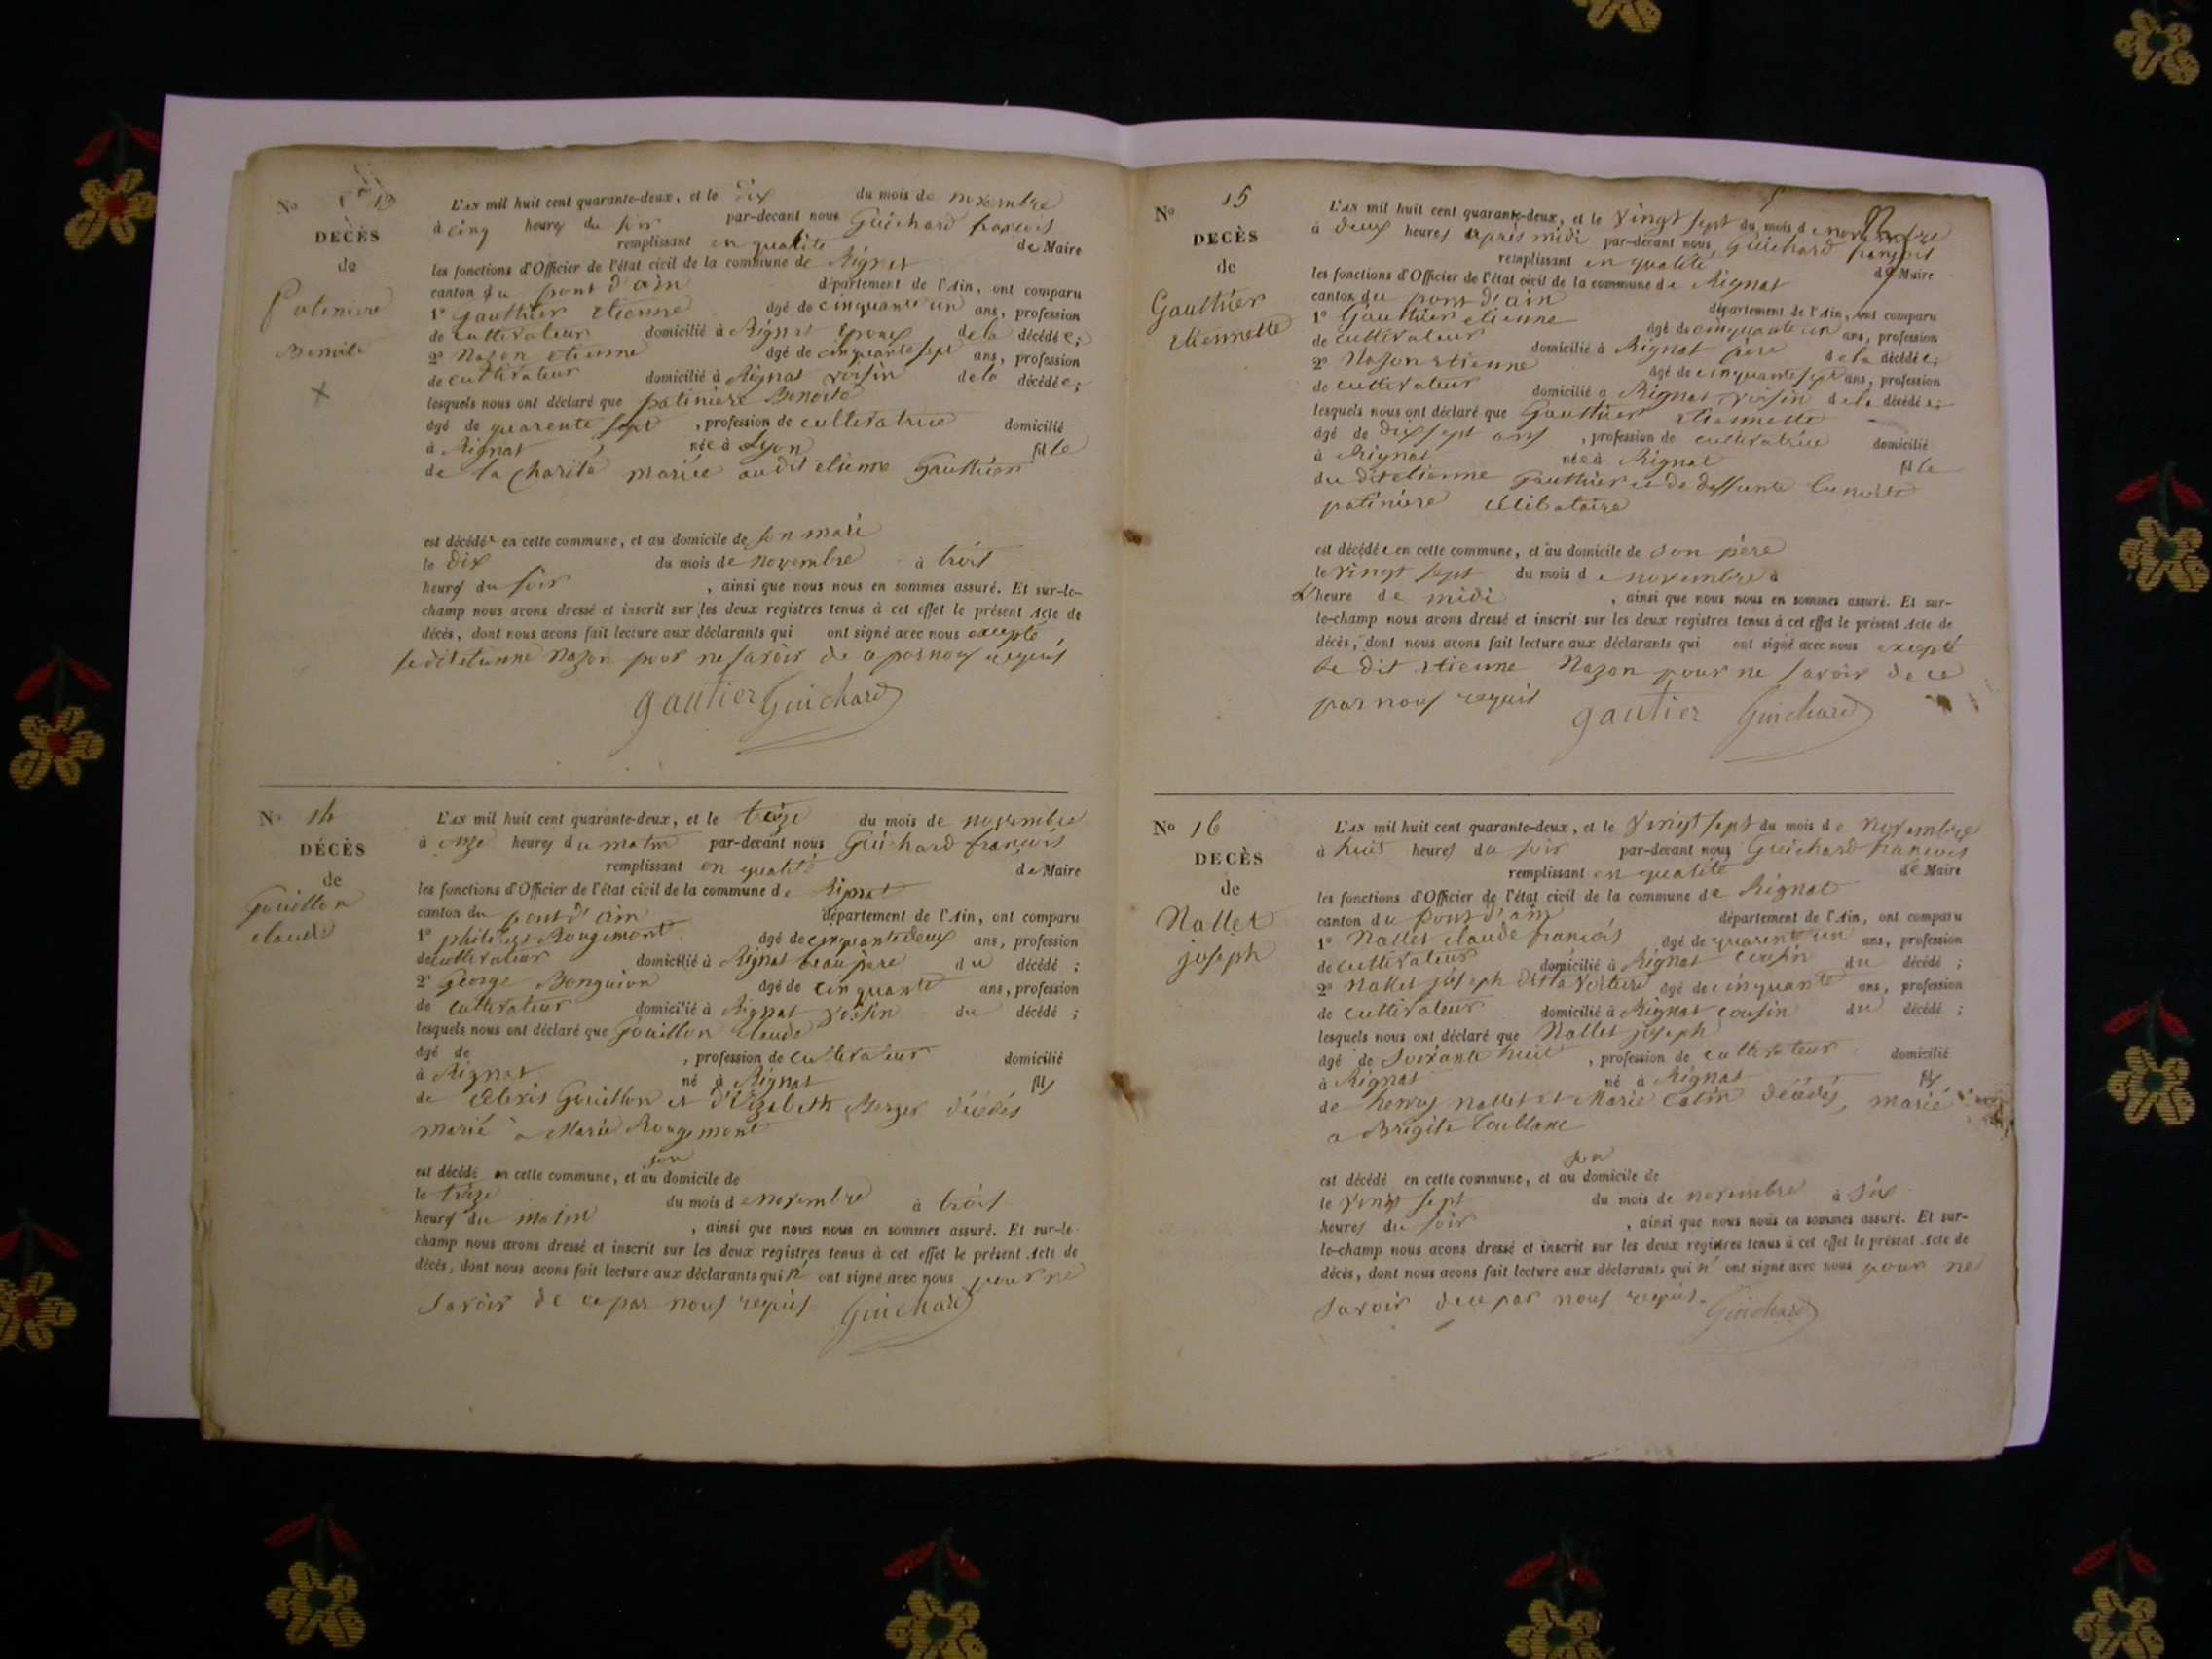 No 13
DECÈS
de
Patiniere
Benoite
L'AN mil huit cent quarante-deux, et le dix du mois de novembre
à cinq heures du soir par-devant nous Guichard françois
remplissant en qualité de Maire
les fonctions d'Officier de l'état civil de la commune de Rignat
canton du pont d'ain département de l'Ain, ont comparu
1° Gauthier etienne âgé de cinquante un ans, profession
de cultivateur domicilié à Rignat epoux de la décédée;
2° Nazon etienne âgé de cinquante sept ans, profession
de cultivateur domicilié à Rignat voisin de la décédée;
lesquels nous ont déclaré que patiniere Benoite
âgé de quarente sept, profession de cultivatrice domicilié
à Rignat née à Lyon fille
de la Charité mariée audit etienne Gauthier
est décédée en cette commune, et au domicile de son mari
le dix du mois de novembre à trois
heures du soir, ainsi que nous nous en sommes assuré. Et sur-le-
champ nous avons dressé et inscrit sur les deux registres tenus à cet effet le présent Acte de
décès, dont nous avons fait lecture aux déclarants qui ont signé avec nous excepté
le dit etienne Nazon pour ne savoir de ce par nous requis
gautier Guichard
No 14
DÉCÈS
de
Gouillon
claude
L'AN mil huit cent quarante-deux, et le treize du mois de novembre
à onze heures du matin par-devant nous Guichard françois
remplissant en qualité de Maire
les fonctions d'Officier de l'état civil de la commune de Rignat
canton du pont d'ain département de l'Ain, ont comparu
1° Rougemont âgé de cinquante deux ans, profession
de cultivateur domicilié à Rignat beau pere du décédé;
2° George Bonguion âgé de cinquante ans, profession
de cultivateur domicilié à Rignat voisin du décédé;
lesquels nous ont déclaré que Gouillon claude
âgé de , profession de cultivateur domicilié
à Rignat né à Rignat fils
de Gouillon et d'Elizabeth Berger décédés
marié a Marie Rougemont
est décédé en cette commune, et au son domicile de
le treize du mois de novembre à trois
heures du matin, ainsi que nous nous en sommes assuré. Et sur-le-
champ nous avons dressé et inscrit sur les deux registres tenus à cet effet le présent Acte de
décès, dont nous avons fait lecture aux déclarants qui n'ont signé avec nous pour ne
savoir de ce par nous requis Guichard
No 15
DECÈS
de
Gauthier
etiennette
L'AN mil huit cent quarante-deux, et le vingt sept du mois de novembre
à deux heures après midi par-devant nous Guichard françois
remplissant en qualité de Maire
les fonctions d'Officier de l'état civil de la commune de Rignat
canton du pont d'ain département de l'Ain, ont comparu
1° Gauthier etienne âgé de cinquante un ans, profession
de cultivateur domicilié à Rignat père de la décédée;
2° Nazon etienne âgé de cinquante sept ans, profession
de cultivateur domicilié à Rignat voisin de la décédée;
lesquels nous ont déclaré que Gauthier etiennette
âgé de dix sept ans, profession de cultivatrice domicilié
à Rignat née à Rignat fille
du dit etienne Gauthier et de deffunte benoite
patiniere célibataire
est décédée en cette commune, et au domicile de son père
le vingt sept du mois de novembre à
l'heure de midi, ainsi que nous nous en sommes assuré. Et sur-
le-champ nous avons dressé et inscrit sur les deux registres tenus à cet effet le présent Acte de
décès, dont nous avons fait lecture aux déclarants qui ont signé avec nous excepté
le dit etienne Nazon pour ne savoir de ce
par nous requis gautier Guichard
No 16
DECÈS
de
Nallet
joseph
L'AN mil huit cent quarante-deux, et le vingt sept du mois de novembre
à huit heures du soir par-devant nous Guichard françois
remplissant en qualité de Maire
les fonctions d'Officier de l'état civil de la commune de Rignat
canton du pont d'ain département de l'Ain, ont comparu
1° Nallet claude françois âgé de quarente un ans, profession
de cultivateur domicilié à Rignat cousin du décédé;
2° Nallet joseph dit âgé de cinquante ans, profession
de cultivateur domicilié à Rignat cousin du décédé;
lesquels nous ont déclaré que Nallet joseph
âgé de soixante huit, profession de cultivateur domicilié
à Rignat né à Rignat fils
de henry nallet et Marie Catin décédés, marié
a Brigite Toublanc
est décédé en cette commune, et au son domicile de
le vingt sept du mois de novembre à six
heures du soir, ainsi que nous nous en sommes assuré. Et sur-
le-champ nous avons dressé et inscrit sur les deux registres tenus à cet effet le présent Acte de
décès, dont nous avons fait lecture aux déclarants qui n'ont signé avec nous pour ne
savoir de ce par nous requis. Guichard